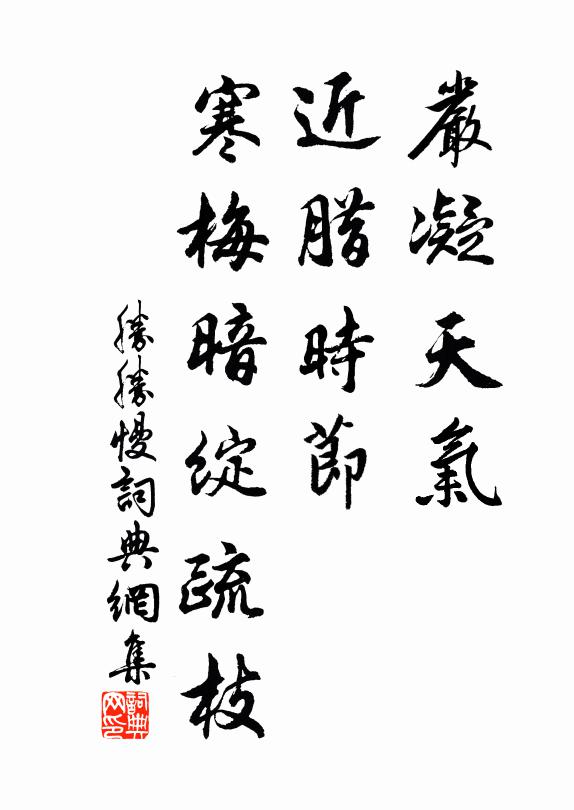 嚴凝天氣
近腊時節
寒梅暗綻疏枝
勝勝慢詞典網集
詞典网印